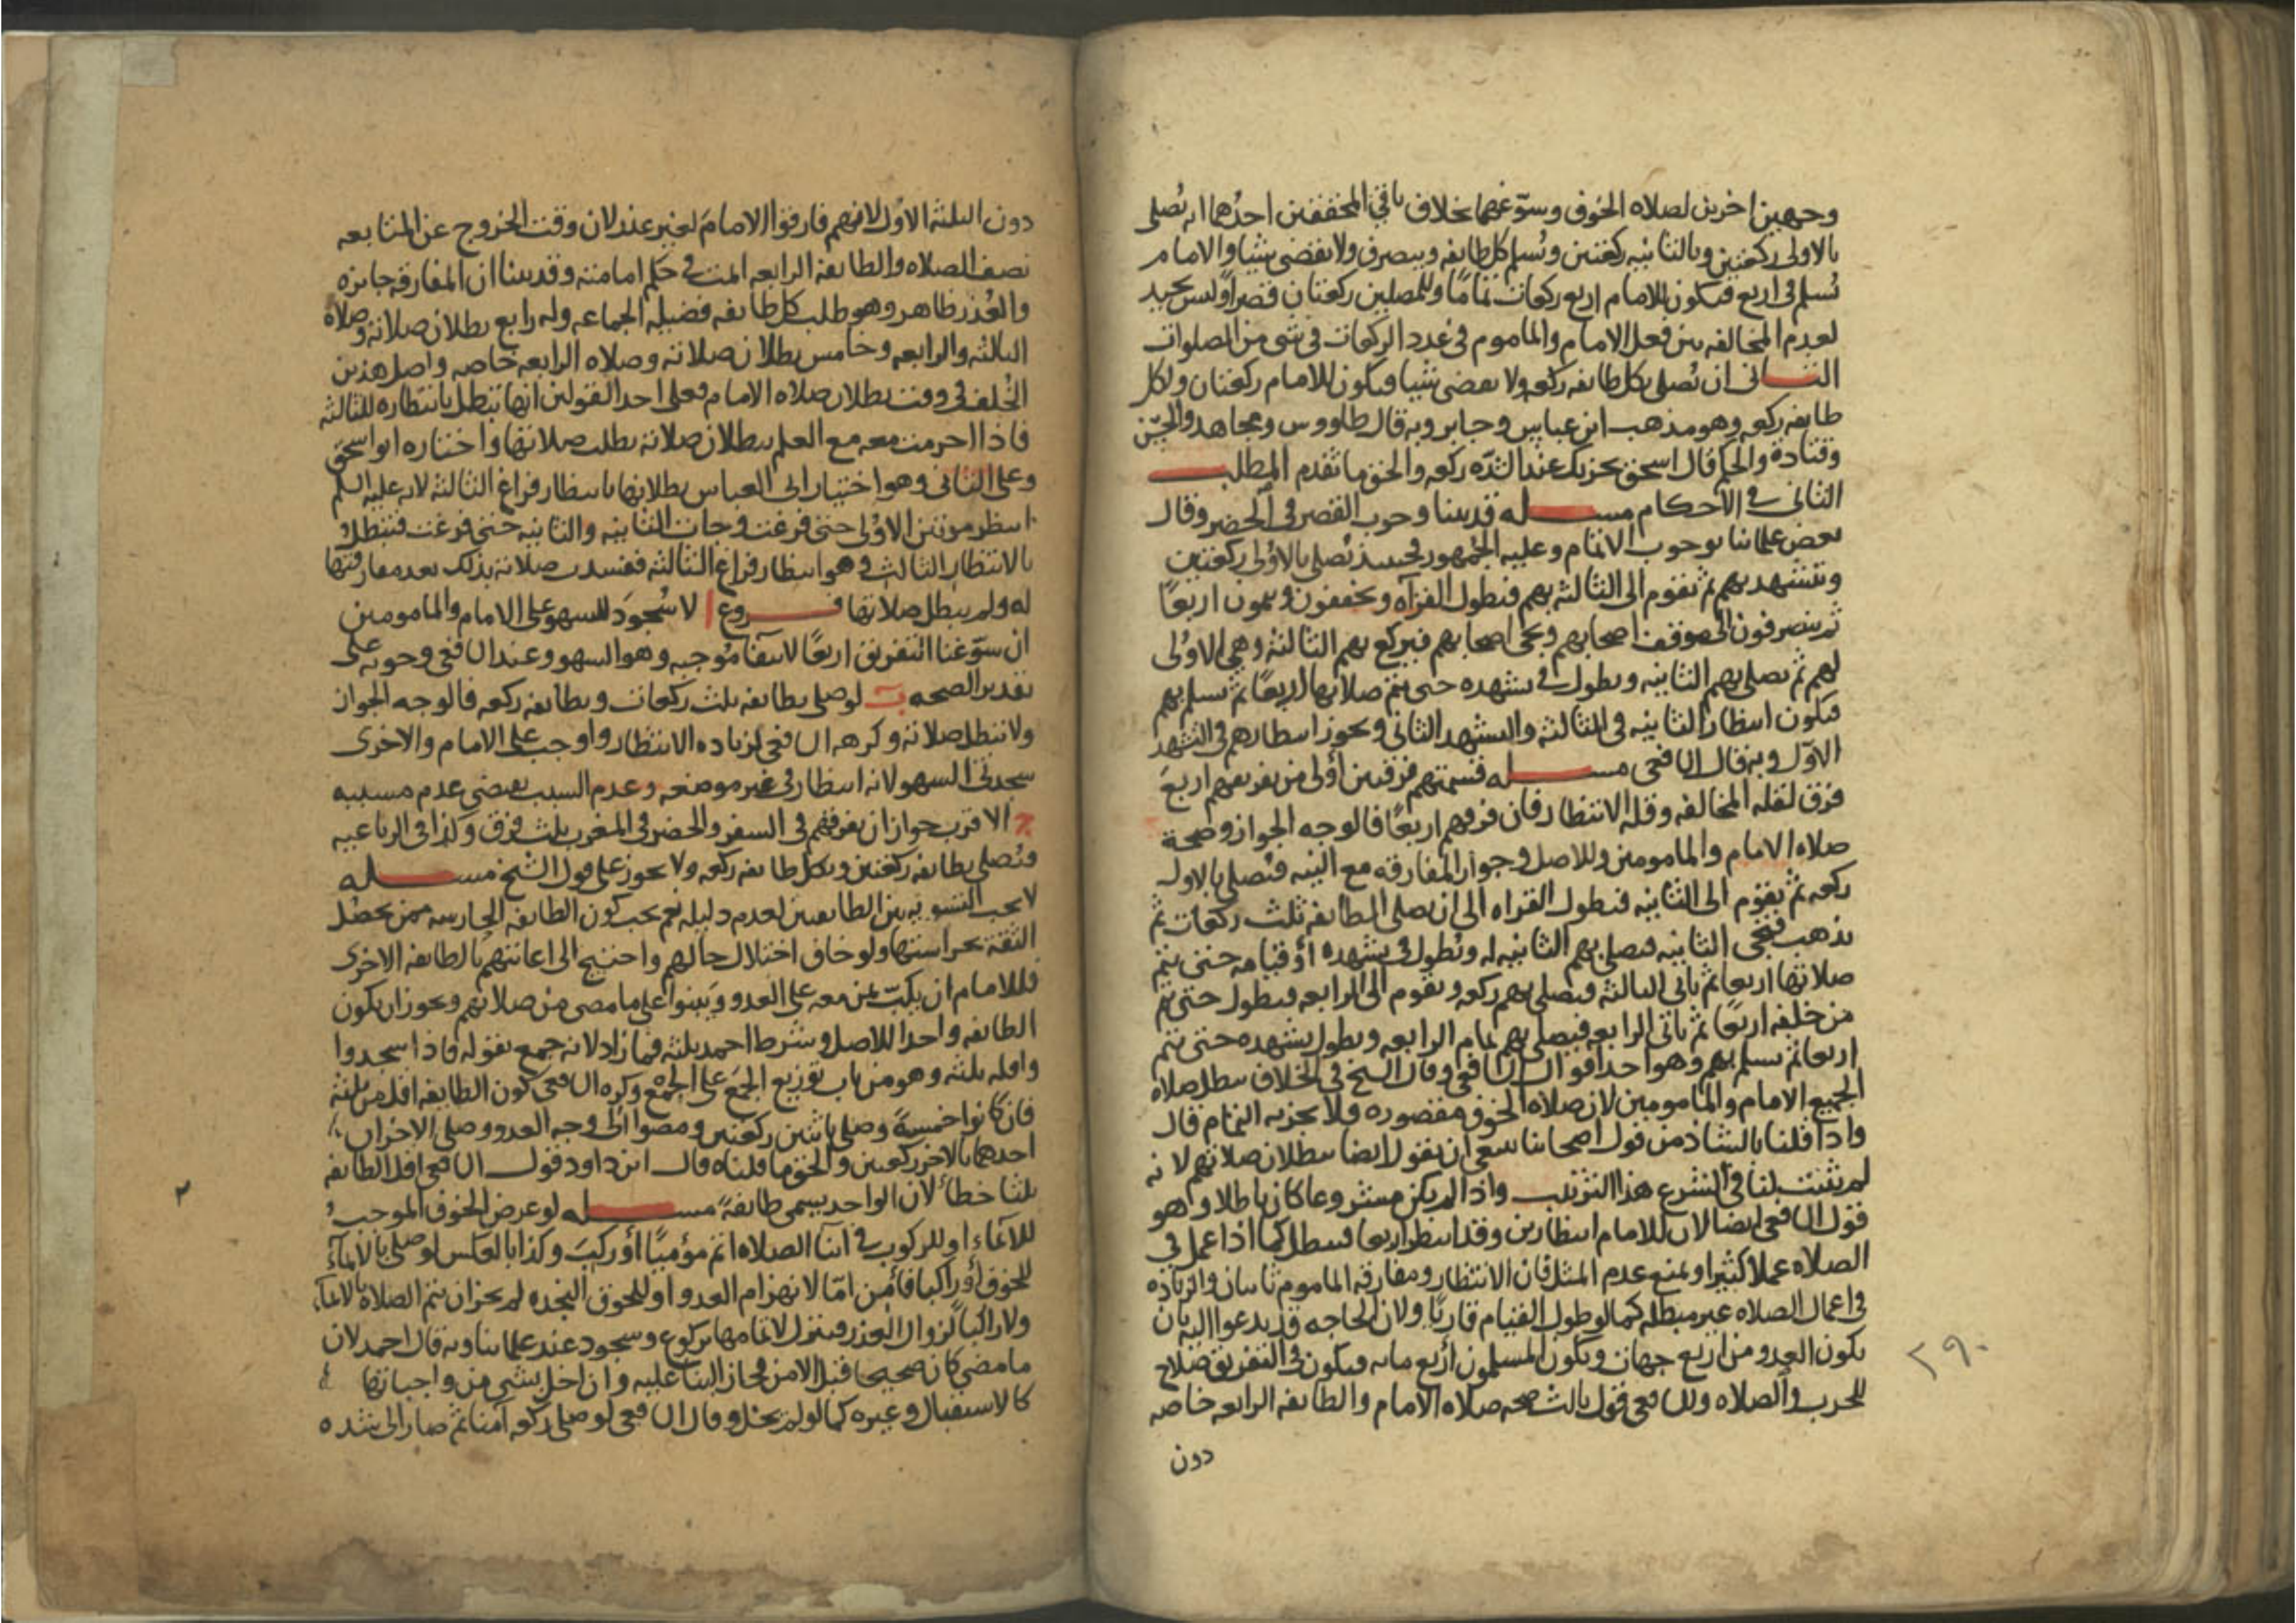 وجهين اخرين لصلاه الخوف وسوّغهما بخلاف باقي المحققين احدُهما انه يُصلي
بالاولى ركعتين وبالثانيه ركعتين ويُسلم كل طايفه وينصرف ولا يقضى شيا والامام
يُسلم في اربع فيكون للامام اربع ركعات تمامًا وللمصلين ركعتان قصراً وليس بجيد
لعدم المخالفه بين فعل الامام والماموم في عدد الركعات في شي من الصلوات
الثـــانى ان يُصلي بكل طايفه ركعه ولا يقضى شيا فيكون للامام ركعتان ولكل
طايفه ركعه وهو مذهب ابن عباس وجابر وبه قال طاووس ومجاهد والحسن
وقتادة والحكم قال اسحق يجزيك عند الشدّه ركعه والحق ما تقدم المطلـــب
الثانى في الاحكام مســـله قد بينا وجوب القصر في الحضر وقال
بعض علمائنا بوجوب الاتمام وعليه الجمهور فحينئذ يُصلي بالاُولى ركعتين
ويتشهد بهم ثم يقوم الى الثالثه بهم فيطول القرآه ويخففون ويتمون اربعاً
ثم ينصرفون الى موقف اصحابهم ويجى اصحابهم فيركع بهم الثالثة وهي الاوُلى
لهم ثم يصلي بهم الثانيه ويطول في تشهده حتى يتم صلاتها اربعًا ثم يسلم بهم
فيكون انتظار الثانيه في الثالثه والتشهد الثاني ويجوز انتظارهم في التشهد
الاوّل وبه قال الشافعى مســـله قسمتهم فرقتين أولى من تفريقهم اربعَ
فرق لقله المخالفه وقله الانتظار فان فرقهم اربعًا فالوجه الجواز وصحة
صلاه الامام والمامومين للاصل وجواز المفارقه مع النيه فيُصلي بالاولى
ركعه ثم يقوم الى الثانيه فيطول القراه الى ان يصلي الطائفه ثلث ركعات ثم
يذهب فتجى الثانيه فيصلي بهم الثانيه له ويُطول في تشهده أو قيامه حتى يتم
صلاتها اربعا ثم ياتى الثالثه فيصلي بهم ركعه ويقوم الى الرابعه فيطول حتى يتم
من خلفه اربعًا ثم ياتى الرابعه فيصلي بهم تمام الرابعه ويطول تشهده حتى يتم
اربعا ثم يسلم بهم وهو احد اقوال الشافعى وقال الشيخ في الخلاف يبطل صلاه
الجميع الامام والمامومين لان صلاه الخوف مقصوره فلا يجزيه التمام قال
واذا قلنا بالشاذ من قول اصحابنا ينبغي ان يقول ايضا ببطلان صلاتهم لانه
لم يثبت لنا في الشرع هذا الترتيب واذا لم يكن مشروعا كان باطلا وهو
قول الشافعى ايضا لان للامام انتظارين وقد انتظر اربعا فيبطل كما اذا عمل في
الصلاه عملا كثيرا ويمنع عدم المثل فان الانتظار ومفارقه الماموم ثابتان والزياده
في اعمال الصلاه غير مبطله كما لو طول القيام قاريًا ولان الحاجه قد يدعوا اليه بان
يكون العدو من اربع جهات ويكون المسلمون أربع مايه فيكون في التفريق صلاح
للحرب والصلاه وللشافعى قول ثالث صحه صلاه الامام والطايفه الرابعه خاصه
دون
٢٩٠
دون الثلثه الاوُل لانهم فارقوا الامامَ لغير عذر لان وقت الخروج عن المتابعه
نصف الصلاه والطايفه الرابعه ائتمت في حكم امامته وقد بينا ان المفارقه جايزه
والعُذر ظاهر وهو طلب كل طايفه فضيله الجماعه وله رابع بطلان صلاته وصلاه
الثالثه والرابعه وخامس بطلان صلاته وصلاه الرابعه خاصه واصل هذين
الخُلف في وقت بطلان صلاه الامام فعلى احد القولين انها تبطل بانتظاره للثالثه
فاذا احرمت معه مع العلم ببطلان صلاته بطلت صلاتها واختاره ابو اسحق
وعلى الثانى وهو اختيار ابى العباس بطلانها بانتظار فراغ الثالثه لانه عليه السلم
انتظر مرتين الاوُلى حتى فرغت وجات الثانيه والثانيه حتى فرغت فتبطلُ
بالانتظار الثالث وهو انتظار فراغ الثالثه ففسدت صلاته بذلك بعد مفارقتها
له ولم يبطل صلاتها فـــروع ا لا سُجودَ للسهو على الامام والمامومين
ان سوّغنا التفريق اربعًا لانتفاء مُوجبه وهو السهو وعند الشافعى وجوبه على
تقدير الصحه ب لو صلى بطايفه ثلث ركعات وبطايفه ركعه فالوجه الجواز
ولا تبطل صلاته وكرهه الشافعى لزياده الانتظار واوجب على الامام والاخرى
سجدتى السهو لانه انتظار في غير موضعه وعدم السبب يقتضى عدم مسببه
ج الاقرب جواز ان يفرقهم في السفر والحضر في المغرب ثلث فرق وكذا في الرباعيه
فيُصلي بطايفه ركعتين وبكل طايفه ركعه ولا يجوز على قول الشيخ مســـله
لا يجب التسويه بين الطايفتين لعدم دليله نعم يجب كون الطايفه الحارسه ممن يحصُل
الثقة بحراستها ولو خاف اختلال حالهم واحتيج الى اعانتهم بالطايفه الاخرى
فللامام ان يكبّ بمن معه على العدو ويَبنوا على ما مضى من صلاتهم ويجوز ان يكون
الطايفه واحدا للاصل وشرط احمد ثلثه فما زاد لانه جمع بقوله فاذا سجدوا
واقله ثلثه وهو من باب توزيع الجَمع على الجَمع وكره الشافعى كون الطايفه اقل من ثلثه
فان كانوا خمسةً وصلى باثنين ركعتين ومضوا الى وجه العدو وصلى الاخران
احدهما بالاخر ركعتين والحق ما قلناه قال ابن داود قول الشافعى اقل الطايفه
ثلثا خطأ لان الواحد يسمى طايفهً مســـله لو عرض الخوف الموجبُ
للايماء او للركوب في اثنا الصلاه اتم مؤميًا أو ركبَ وكذا بالعكس لو صلى بالايمآءُ
للخوف أو راكبا فأمِن امّا لانهزام العدو او للحوق النجده لم يجز ان يتم الصلاة بالايمآء
ولا راكباً لزوال العذر فينزل لاتمامها بركوع وسجود عند علمائنا وبه قال احمد لان
ما مضى كان صحيحا قبل الامن فجاز البناء عليه وان اخل بشي من واجباتها
كالاستقبال وغيره كما لو لم يخل وقال الشافعى لو صلى ركعه آمنا ثم صار الى شده